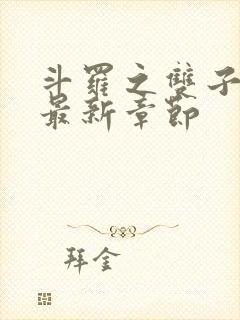 斗羅之雙子
最新章節
拜金